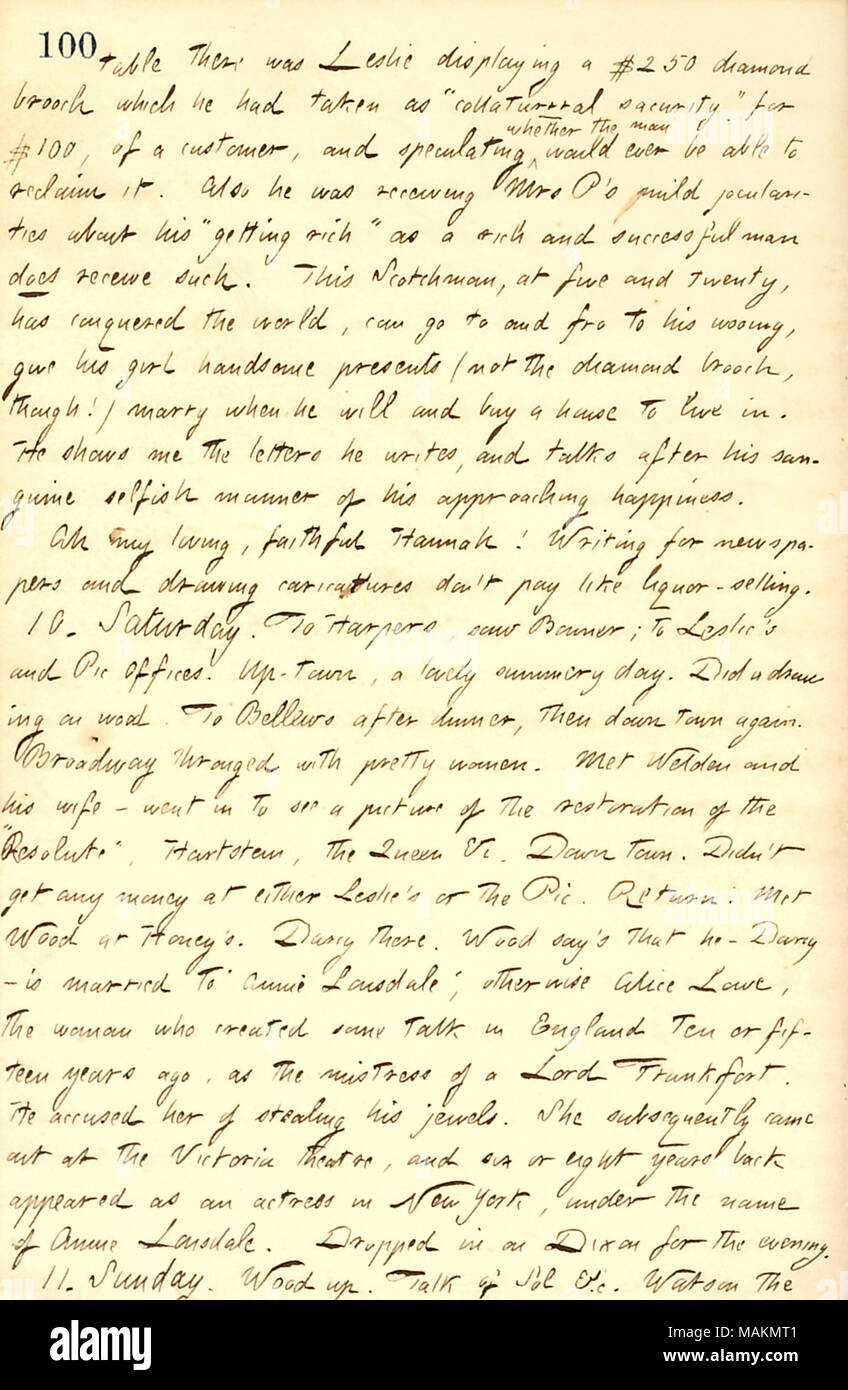 100
table there was Leslie displaying a $250 diamond
brooch which he had taken as "collaturrral sacurity" for
$100, of a customer, and speculating whether the man would ever be able to
reclaim it. Also he was receiving Mrs P's mild joculari-
ties about his "getting rich" as a rich and successful man
does receive such. This Scotchman, at five and twenty,
has conquered the world, can go to and fro to his wooing,
give his girl handsome presents (not the diamond brooch,
though!) marry when he will and buy a house to live in.
He shows me the letters he writes, and talks after his san-
guine selfish manner of his approaching happiness.
Ah my loving, faithful Hannah! Writing for newspa-
pers and drawing caricattures don't pay like liquor-selling.
10. Saturday. To Harpers, saw Bonner; to Leslie's
and Pic offices. Up-town, a lovely summery day. Did a draw-
ing on wood. To Bellews after dinner, then down town again.
Broadway thronged with pretty women. Met Welden and
his wife - went in to see a picture of the restoration of the
"Resolute", Hartstein, the Queen &c. Down town. Didn't
get any money at either Leslie's or the Pic. Return. Met
Wood at Honey's. Darcy there. Wood say's that he - Darcy
- is married to "Annie Lonsdale", otherwise Alice Lowe,
the woman who created some talk in England ten or fif-
teen years ago, as the mistress of a Lord Frankfort.
He accused her of stealing his jewels. She subsequently came
out at the Victoria theatre, and six or eight years back
appeared as an actress in New York, under the name
of Annie Lonsdale. Dropped in on Dixon for the evening.
11. Sunday. Wood up. Talk of Sol &c. Watson the
alamy
Image ID: MAKMT1
www.alamy.com